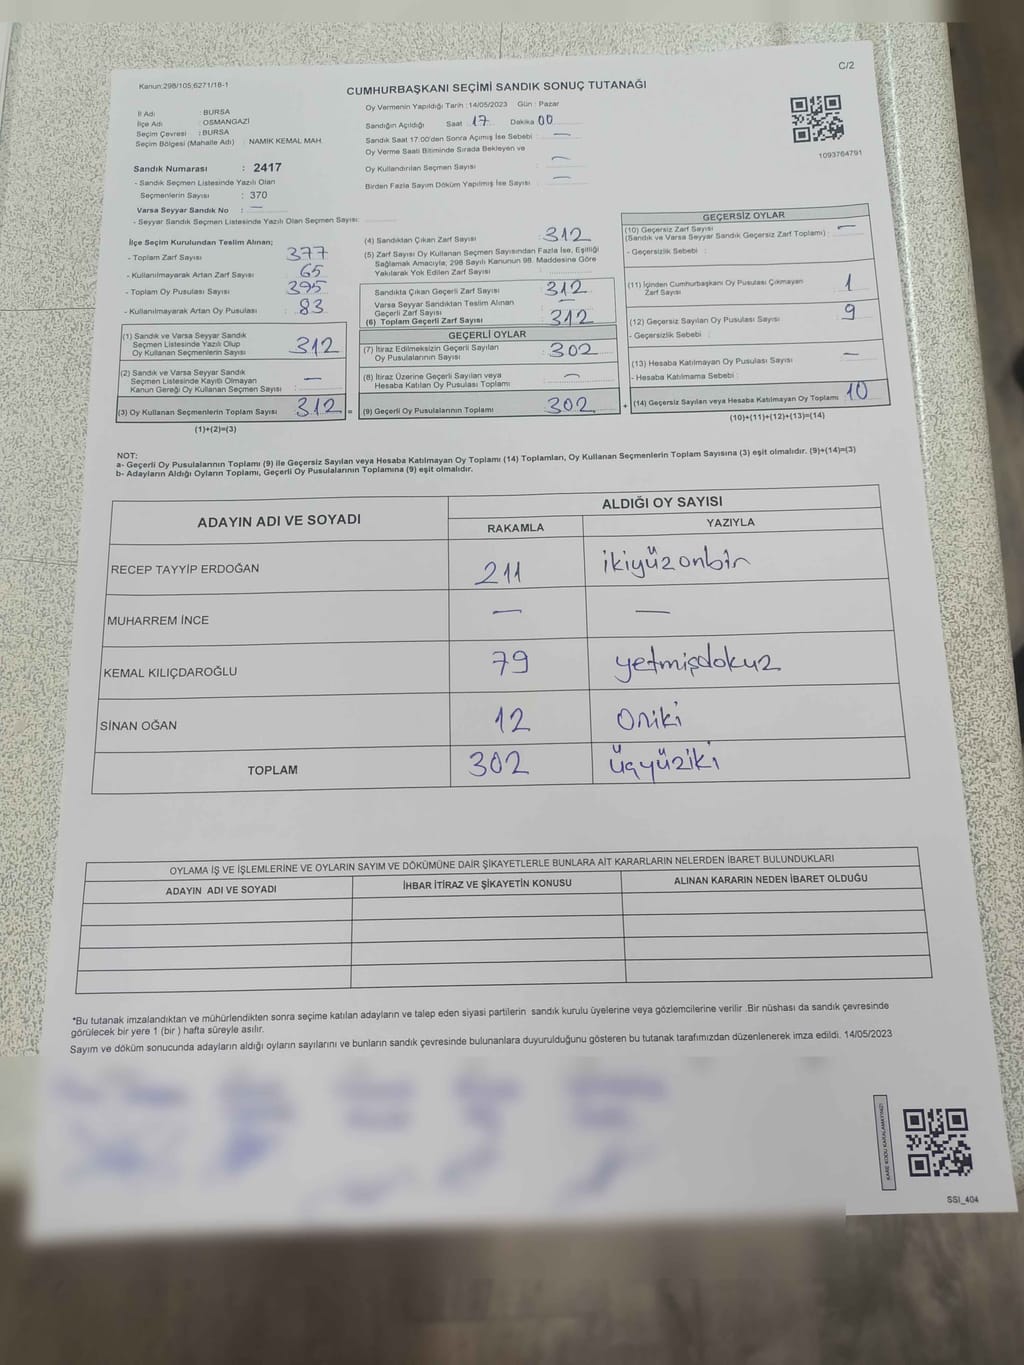 Kanun:298/105;6271/18-1
C/2
CUMHURBAŞKANI SEÇİMİ SANDIK SONUÇ TUTANAĞI
İl Adı : BURSA
İlçe Adı : OSMANGAZİ
Seçim Çevresi : BURSA
Seçim Bölgesi (Mahalle Adı) : NAMIK KEMAL MAH.
Oy Vermenin Yapıldığı Tarih :14/05/2023 Gün : Pazar
Sandığın Açıldığı Saat 17 Dakika 00
Sandık Saat 17.00'den Sonra Açımış İse Sebebi : —
Oy Verme Saati Bitiminde Sırada Bekleyen ve
Oy Kullandırılan Seçmen Sayısı : —
Birden Fazla Sayım Döküm Yapılmış İse Sayısı : —
1093764791
Sandık Numarası : 2417
- Sandık Seçmen Listesinde Yazılı Olan
Seçmenlerin Sayısı : 370
Varsa Seyyar Sandık No : —
- Seyyar Sandık Seçmen Listesinde Yazılı Olan Seçmen Sayısı:
İlçe Seçim Kurulundan Teslim Alınan;
- Toplam Zarf Sayısı : 377
- Kullanılmayarak Artan Zarf Sayısı : 65
- Toplam Oy Pusulası Sayısı : 395
- Kullanılmayarak Artan Oy Pusulası : 83
(1) Sandık ve Varsa Seyyar Sandık
Seçmen Listesinde Yazılı Olup
Oy Kullanan Seçmenlerin Sayısı : 312
(2) Sandık ve Varsa Seyyar Sandık
Seçmen Listesinde Kayıtlı Olmayan
Kanun Gereği Oy Kullanan Seçmen Sayısı : —
(3) Oy Kullanan Seçmenlerin Toplam Sayısı : 312 =
(1)+(2)=(3)
(4) Sandıktan Çıkan Zarf Sayısı : 312
(5) Zarf Sayısı Oy Kullanan Seçmen Sayısından Fazla İse, Eşitliği
Sağlamak Amacıyla, 298 Sayılı Kanunun 98. Maddesine Göre
Yakılarak Yok Edilen Zarf Sayısı :
Sandıkta Çıkan Geçerli Zarf Sayısı : 312
Varsa Seyyar Sandıktan Teslim Alınan
Geçerli Zarf Sayısı : —
(6) Toplam Geçerli Zarf Sayısı : 312
GEÇERLİ OYLAR
(7) İtiraz Edilmeksizin Geçerli Sayılan
Oy Pusulalarının Sayısı : 302
(8) İtiraz Üzerine Geçerli Sayılan veya
Hesaba Katılan Oy Pusulası Toplamı : —
(9) Geçerli Oy Pusulalarının Toplamı : 302 +
GEÇERSİZ OYLAR
(10) Geçersiz Zarf Sayısı
(Sandık ve Varsa Seyyar Sandık Geçersiz Zarf Toplamı) : —
- Geçersizlik Sebebi :
(11) İçinden Cumhurbaşkanı Oy Pusulası Çıkmayan
Zarf Sayısı : 1
(12) Geçersiz Sayılan Oy Pusulası Sayısı : 9
- Geçersizlik Sebebi :
(13) Hesaba Katılmayan Oy Pusulası Sayısı : —
- Hesaba Katılmama Sebebi :
(14) Geçersiz Sayılan veya Hesaba Katılmayan Oy Toplamı : 10
(10)+(11)+(12)+(13)=(14)
NOT:
a- Geçerli Oy Pusulalarının Toplamı (9) ile Geçersiz Sayılan veya Hesaba Katılmayan Oy Toplamı (14) Toplamları, Oy Kullanan Seçmenlerin Toplam Sayısına (3) eşit olmalıdır. (9)+(14)=(3)
b- Adayların Aldığı Oyların Toplamı, Geçerli Oy Pusulalarının Toplamına (9) eşit olmalıdır.
ADAYIN ADI VE SOYADI
ALDIĞI OY SAYISI
RAKAMLA YAZIYLA
RECEP TAYYİP ERDOĞAN 211 ikiyüzonbir
MUHARREM İNCE — —
KEMAL KILIÇDAROĞLU 79 yetmişdokuz
SİNAN OĞAN 12 Oniki
TOPLAM 302 Üçyüziki
OYLAMA İŞ VE İŞLEMLERİNE VE OYLARIN SAYIM VE DÖKÜMÜNE DAİR ŞİKAYETLERLE BUNLARA AİT KARARLARIN NELERDEN İBARET BULUNDUKLARI
ADAYIN ADI VE SOYADI İHBAR İTİRAZ VE ŞİKAYETİN KONUSU ALINAN KARARIN NEDEN İBARET OLDUĞU
*Bu tutanak imzalandıktan ve mühürlendikten sonra seçime katılan adayların ve talep eden siyasi partilerin sandık kurulu üyelerine veya gözlemcilerine verilir .Bir nüshası da sandık çevresinde
görülecek bir yere 1 (bir ) hafta süreyle asılır.
Sayım ve döküm sonucunda adayların aldığı oyların sayılarını ve bunların sandık çevresinde bulunanlara duyurulduğunu gösteren bu tutanak tarafımızdan düzenlenerek imza edildi. 14/05/2023
KARE KODU KARALAMAYINIZ!
SSI_404